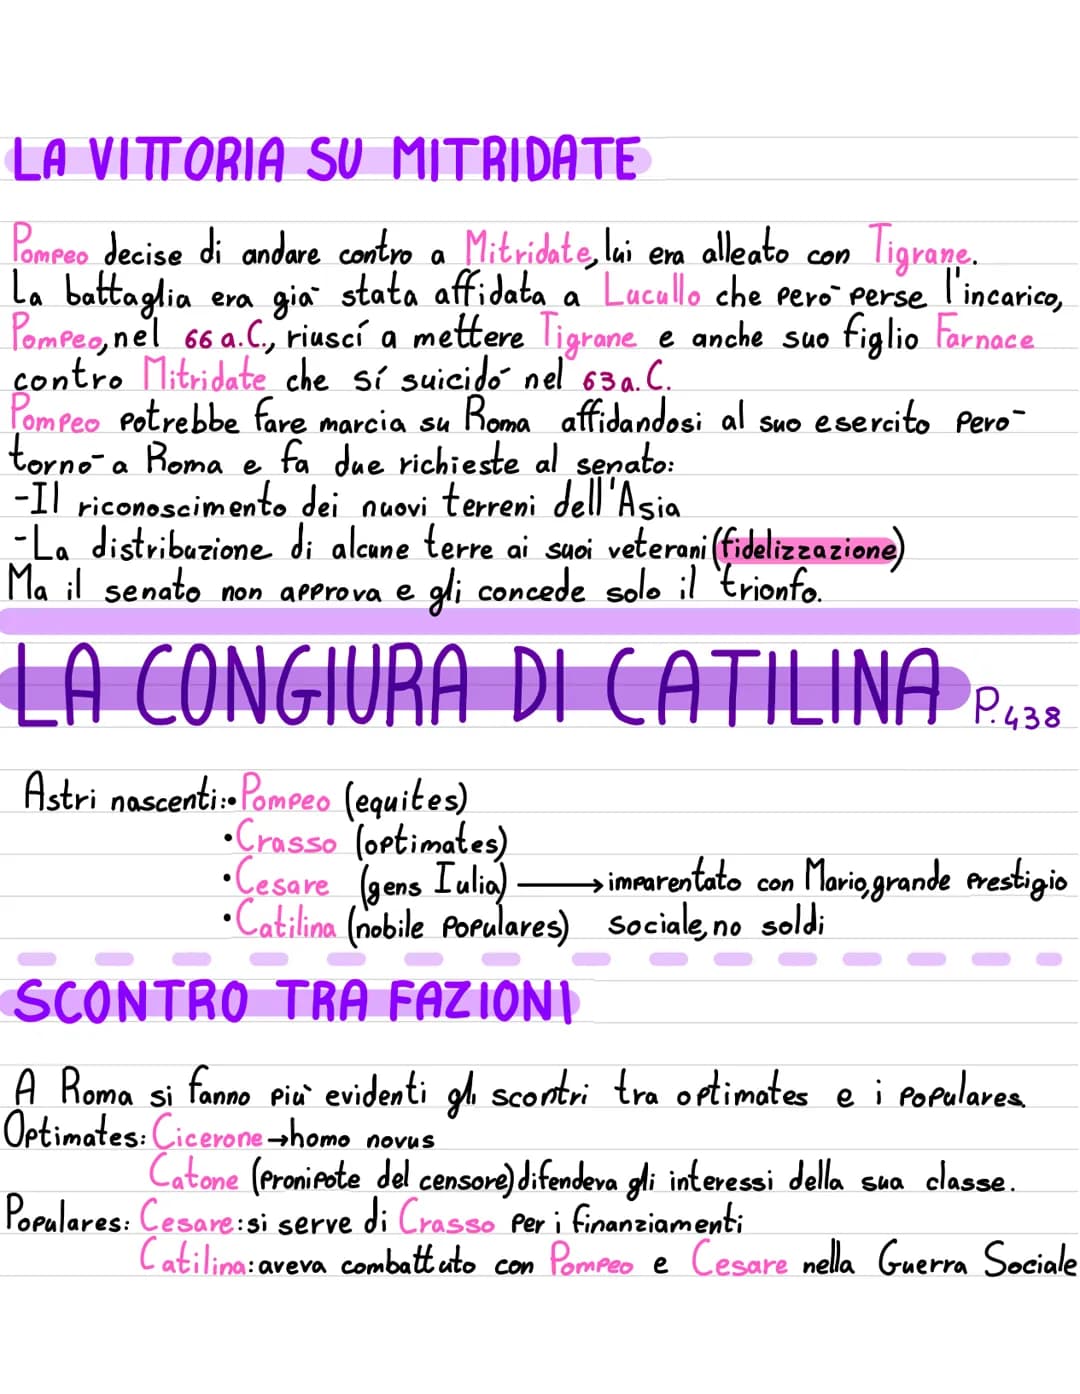 LA VITTORIA SU MITRIDATE
Pompeo decise di andare contro a Mitridate, lui era alleato con Tigrane.
La battaglia era gia¯ stata affidata a Lucullo che pero¯ perse l'incarico,
Pompeo, nel 66 a.C., riuscí a mettere Tigrane e anche suo figlio Farnace
contro Mitridate che sí suicido¯ nel 63 a.C.
Pompeo potrebbe fare marcia su Roma affidandosi al suo esercito pero¯
torno¯ a Roma e fa due richieste al senato:
-Il riconoscimento dei nuovi terreni dell'Asia
-La distribuzione di alcune terre ai suoi veterani (fidelizzazione)
Ma il senato non approva e gli concede solo il trionfo.
LA CONGIURA DI CATILINA P.438
Astri nascenti:•Pompeo (equites)
•Crasso (optimates)
•Cesare (gens Iulia) → imparentato con Mario, grande prestigio
•Catilina (nobile populares) sociale, no soldi
SCONTRO TRA FAZIONI
A Roma si fanno più evidenti gli scontri tra optimates e i populares.
Optimates: Cicerone→homo novus
Catone (pronipote del censore) difendeva gli interessi della sua classe.
Populares: Cesare: si serve di Crasso per i finanziamenti
Catilina: aveva combattuto con Pompeo e Cesare nella Guerra Sociale